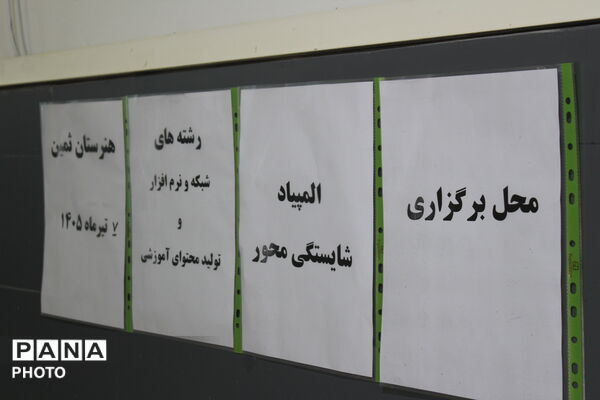 محل برگزاری
المپیاد
شایستگی محور
رشته های
شبکه و نرم افزار
و
تولید محتوای آموزشی
هنرستان ثمین
۷ تیرماه ۱۴۰۵
PANA
PHOTO